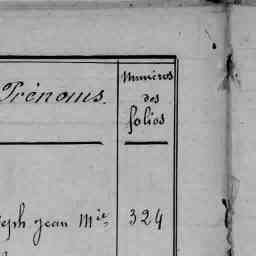 Prénoms.
Numéros
des
folios
seph jean Mie
324